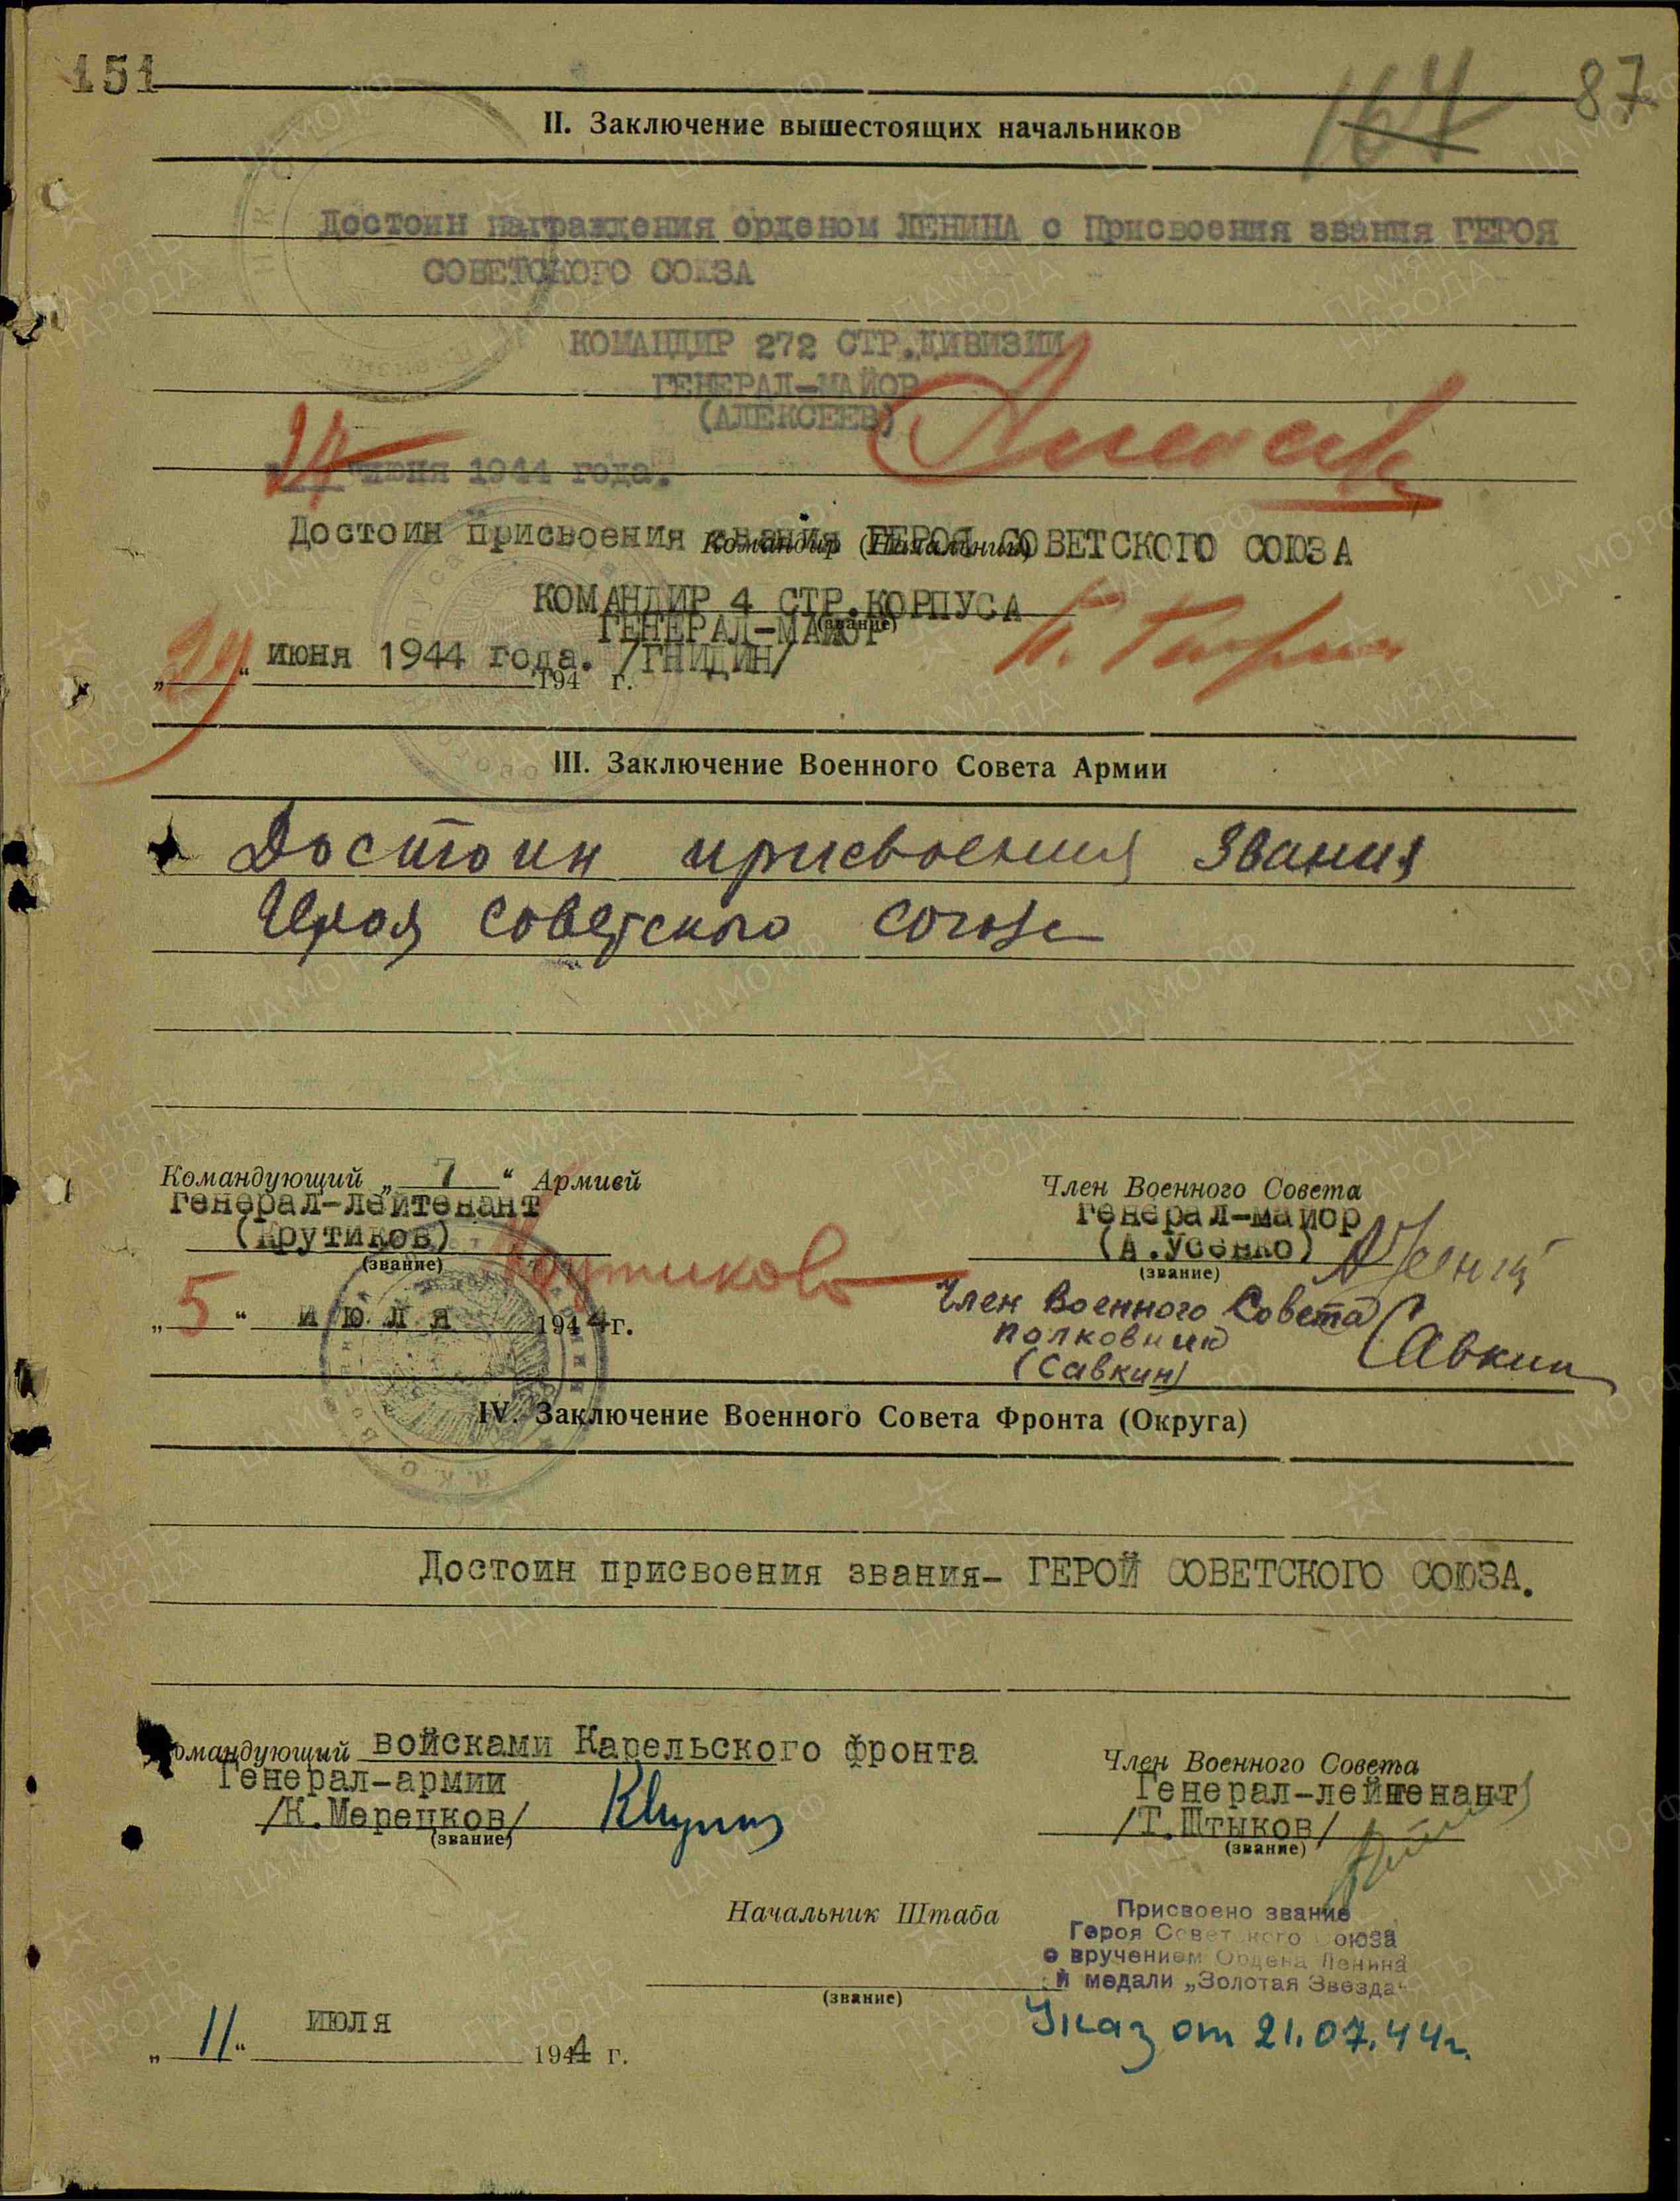 151
164
87
II. Заключение вышестоящих начальников
Достоин награждения орденом ЛЕНИНА с Присвоения звания ГЕРОЯ
СОВЕТСКОГО СОЮЗА
КОМАНДИР 272 СТР.ДИВИЗИИ
ГЕНЕРАЛ-МАЙОР
(АЛЕКСЕЕВ)
24 июня 1944 года.
Достоин присвоения звания ГЕРОЯ СОВЕТСКОГО СОЮЗА
Командир (Начальник)
КОМАНДИР 4 СТР.КОРПУСА
(звание)
ГЕНЕРАЛ-МАЙОР
„29“ июня 1944 года. /ГНИДИН/
194 г.
III. Заключение Военного Совета Армии
Достоин присвоения звания
Героя Советского Союза
Командующий „7“ Армией
Генерал-лейтенант
(Крутиков)
(звание)
Крутиков
„5“ июля 1944г.
Член Военного Совета
Генерал-майор
(А.Усенко)
(звание)
Член Военного Совета
полковник
(Савкин)
Савкин
IV. Заключение Военного Совета Фронта (Округа)
Достоин присвоения звания- ГЕРОЙ СОВЕТСКОГО СОЮЗА.
Командующий войсками Карельского фронта
Генерал-армии
/К.Мерецков/
(звание)
Член Военного Совета
Генерал-лейтенант
/Т.Штыков/
(звание)
Начальник Штаба
(звание)
Присвоено звание
Героя Советского Союза
с вручением Ордена Ленина
и медали „Золотая Звезда“
Указ от 21.07.44г.
„11“ июля 1944 г.
ПАМЯТЬ НАРОДА
ЦА МО РФ